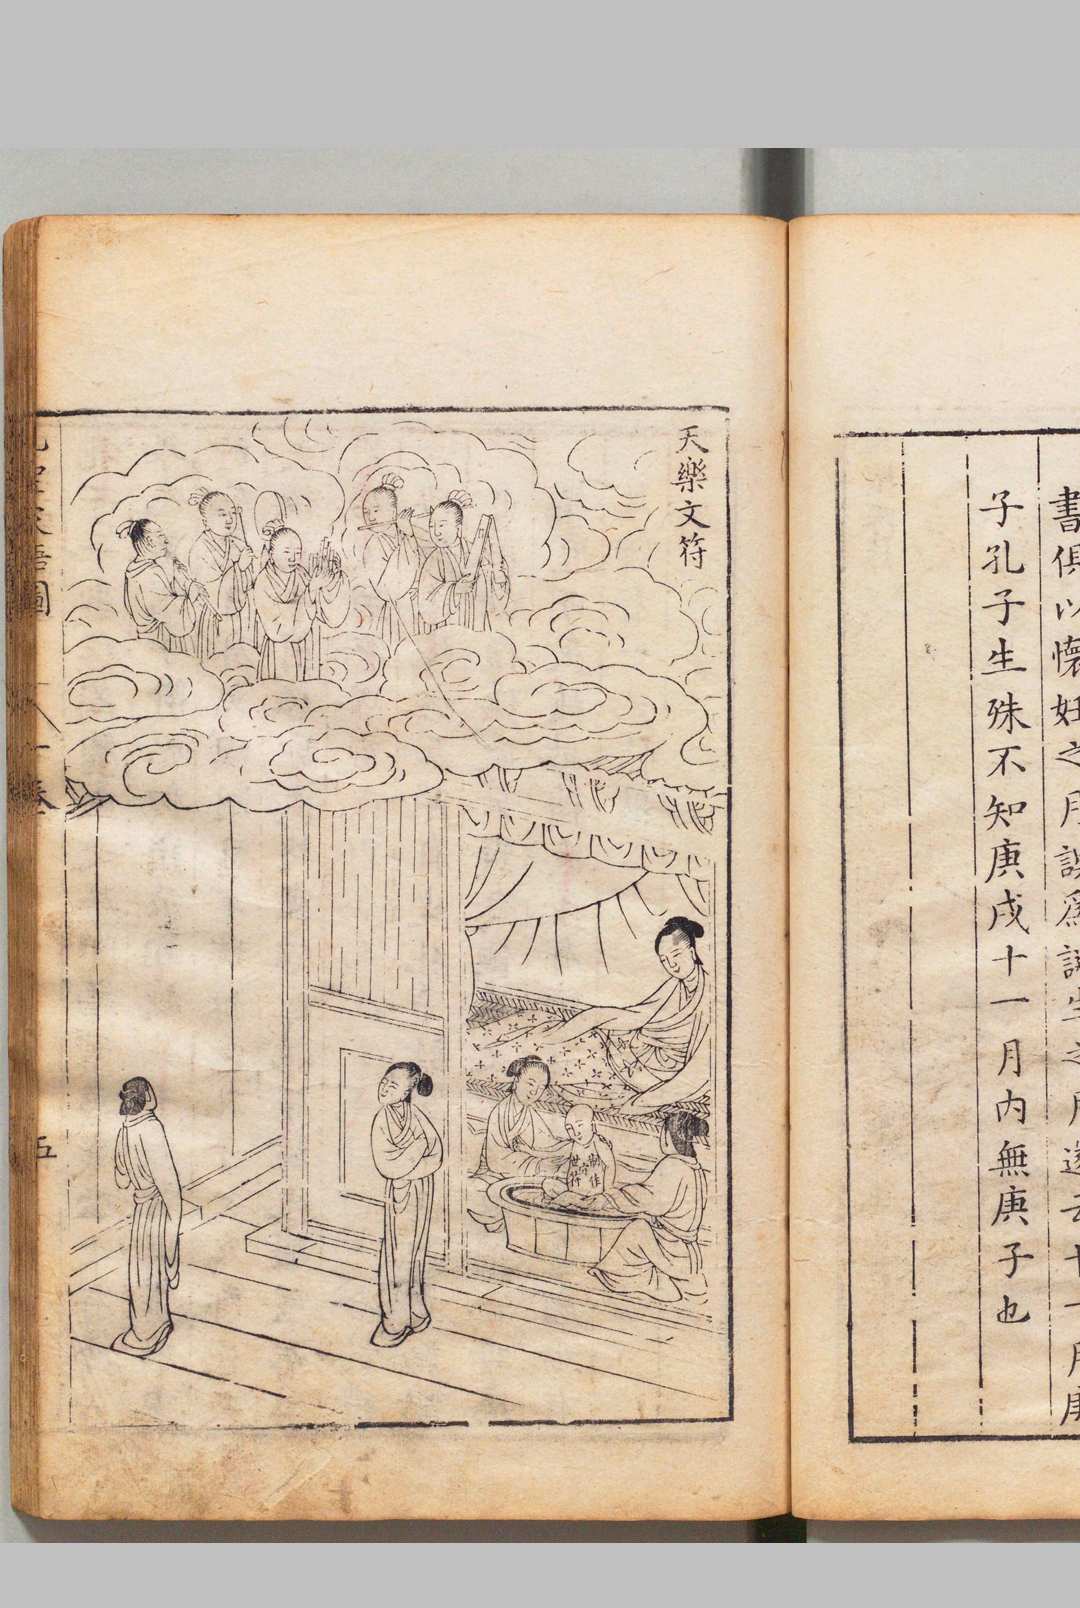 書俱以懷妊之月誤爲誕生之月遂云十一月庚
子孔子生殊不知庚戌十一月内無庚子也
天樂文符
制作
定
世符
孔聖家語圖
一卷
五